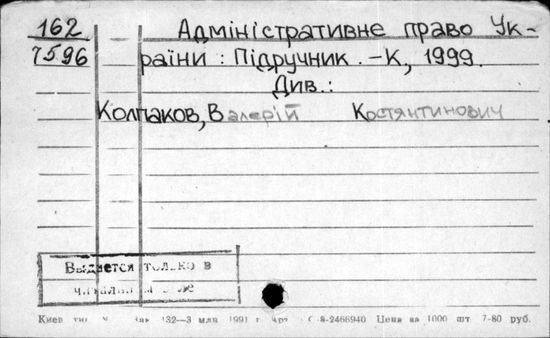 162 Адміністративне право Ук-
7596 раїни : Підручник . –К, 1999.
Див.:
Колпаков, Валерій Костянтинович
Выдается только в
читальном зале
Киев 132—3 млн 1991 г. 8-2466940 Цена за 1000 шт. 7-80 руб.